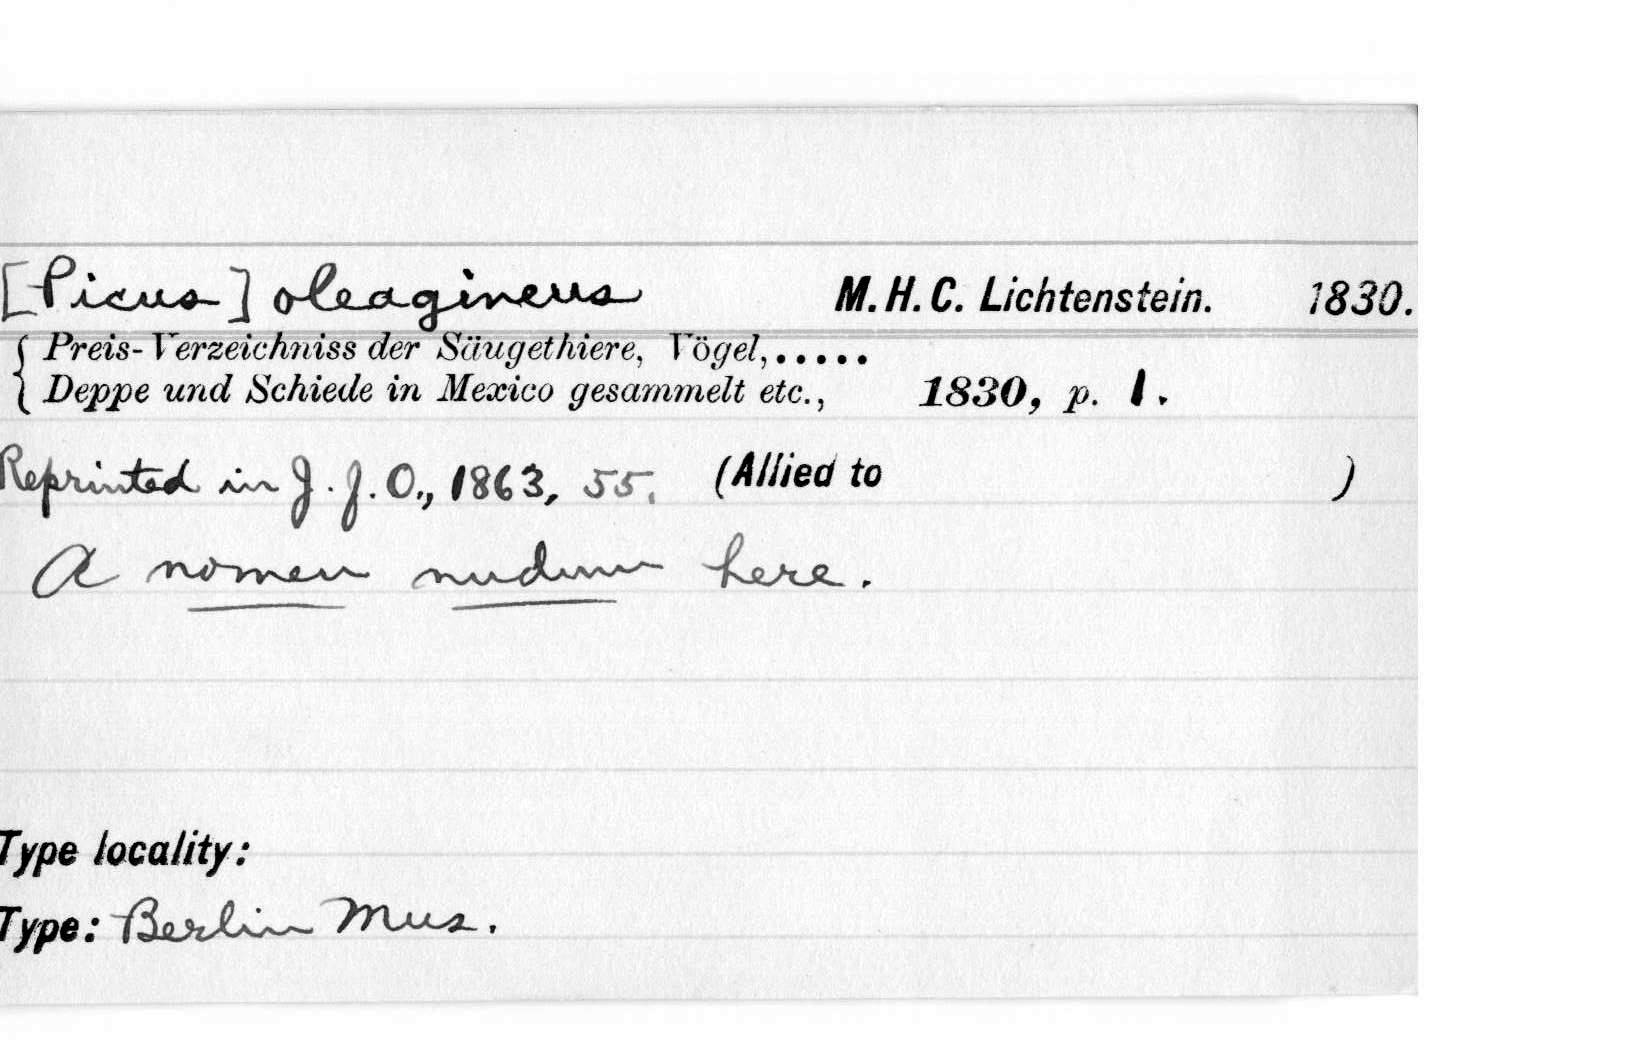 [Picus] oleagineus M. H. C. Lichtenstein. 1830.
{ Preis-Verzeichniss der Säugethiere, Vögel,.....
Deppe und Schiede in Mexico gesammelt etc., 1830, p. 1.
Reprinted in J. f. O., 1863, 55. (Allied to )
A nomen nudum here.
Type locality:
Type: Berlin Mus.